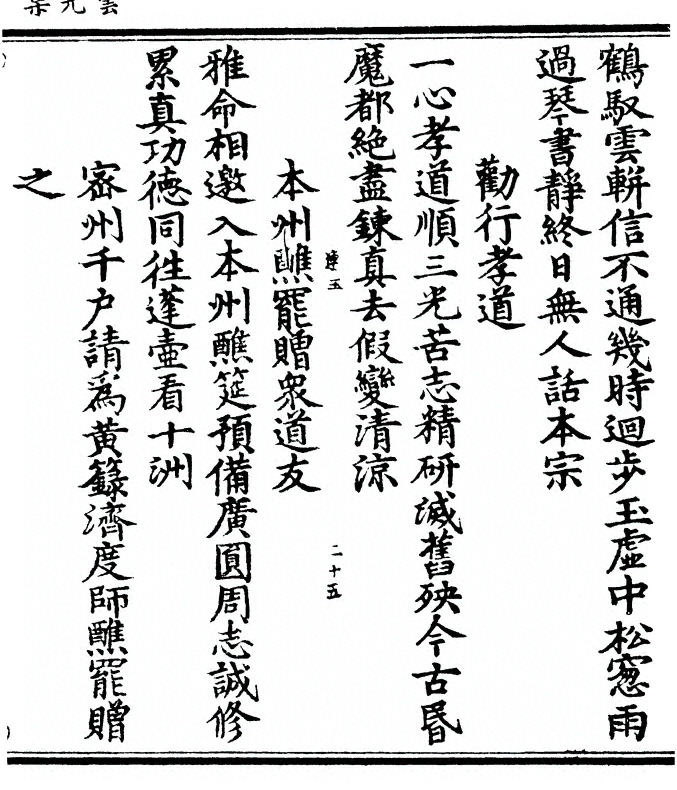 鶴馭雲軿信不通幾時迴步玉虛中松窓雨
過琴書靜終日無人話本宗
勸行孝道
一心孝道順三光苦志精研滅舊殃今古昬
魔都絶盡鍊真去假變清涼
二十五
本州醮罷贈衆道友
雅命相邀入本州醮筵預備廣圓周志誠修
累真功德同徃蓬壷看十洲
宻州千户請爲黄籙濟度師醮罷贈
之